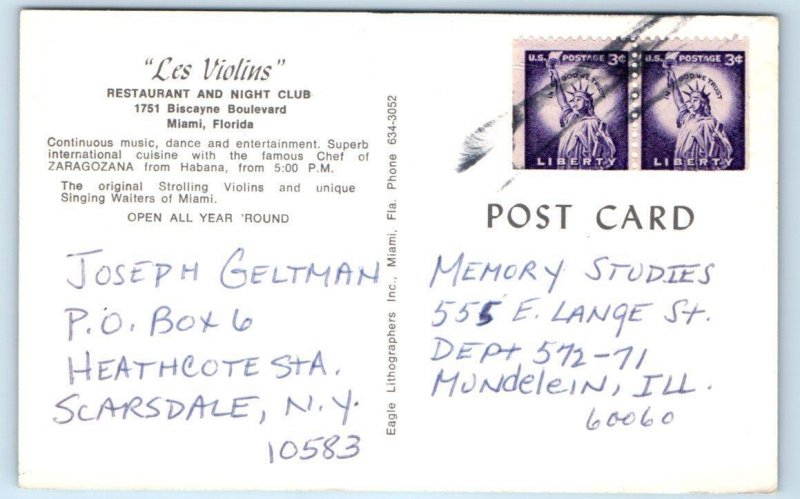 "Les Violins"
RESTAURANT AND NIGHT CLUB
1751 Biscayne Boulevard
Miami, Florida
Continuous music, dance and entertainment. Superb
international cuisine with the famous Chef of
ZARAGOZANA from Habana, from 5:00 P.M.
The original Strolling Violins and unique
Singing Waiters of Miami.
OPEN ALL YEAR 'ROUND
JOSEPH GELTMAN
P.O. BOX 6
HEATHCOTE STA.
SCARSDALE, N.Y.
10583
Eagle Lithographers Inc., Miami, Fla. Phone 634-3052
U.S. POSTAGE 3¢
IN GOD WE TRUST
LIBERTY
U.S. POSTAGE 3¢
IN GOD WE TRUST
LIBERTY
POST CARD
MEMORY STUDIES
555 E. LANGE St.
DEPt 572-71
MUNdeleIN, ILL.
60060